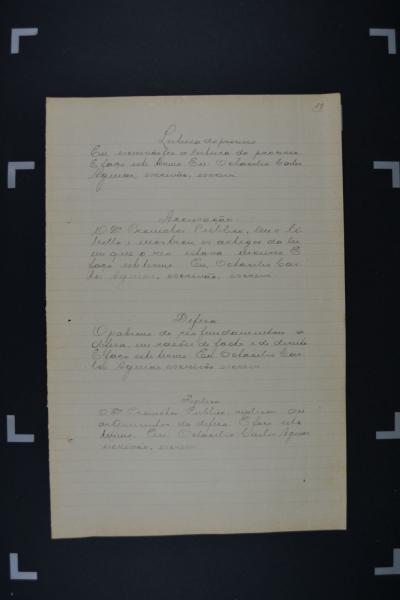 Leitura do processo
Eu, escrivão fiz a leitura do processo.
E faço este termo. Eu, Octacilio Carlos
Aguiar, escrivão, escrevi.
Accusação
O Dr Promotor Publico, leu o li
bello e mostrou os artigos da lei
em que o réo estava incurso. E
faço este termo. Eu, Octacilio Car
los Aguiar, escrivão, escrevi.
Defesa
O patrono do réo fundamentou a
defesa, em razões de facto e de direito
E faço este termo. Eu Octacilio Car
los Aguiar escrivão escrevi
Replica
O Dr Promotor Publico, replicou os
argumentos da defesa. E faço este
termo. Eu, Octacilio Carlos Aguiar
escrivão, escrevi